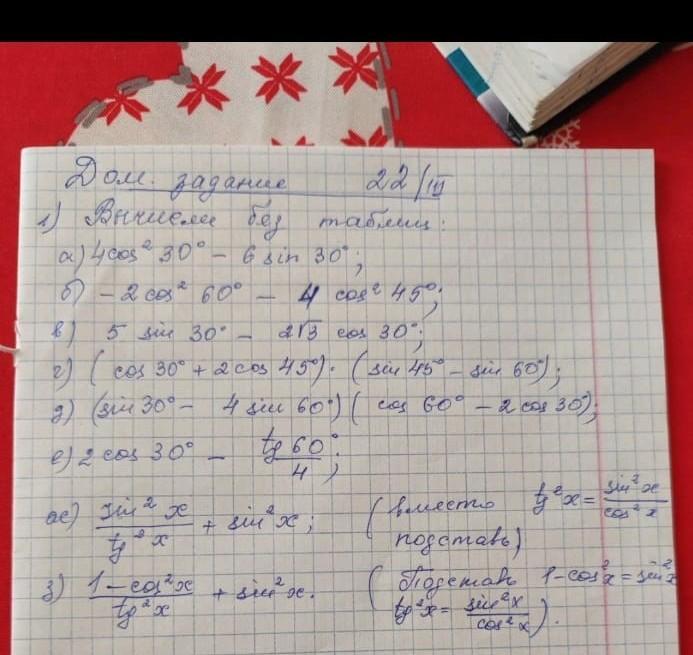 Дом. задание 22/III
1) Вычисли без таблиц:
а) 4cos² 30° - 6 sin 30°;
б) - 2 cos² 60° - 4 cos² 45°;
в) 5 sin 30° - 2√3 cos 30°;
г) (cos 30° + 2 cos 45°)·(sin 45° - sin 60°);
д) (sin 30° - 4 sin 60°)(cos 60° - 2 cos 30°);
е) 2 cos 30° - tg 60°/4;
ж) sin² x / tg² x + sin² x; (вместо tg² x = sin² x / cos² x
подставь)
з) 1 - cos² x / tg² x + sin² x. (Подставь 1 - cos² x = sin² x
tg² x = sin² x / cos² x).